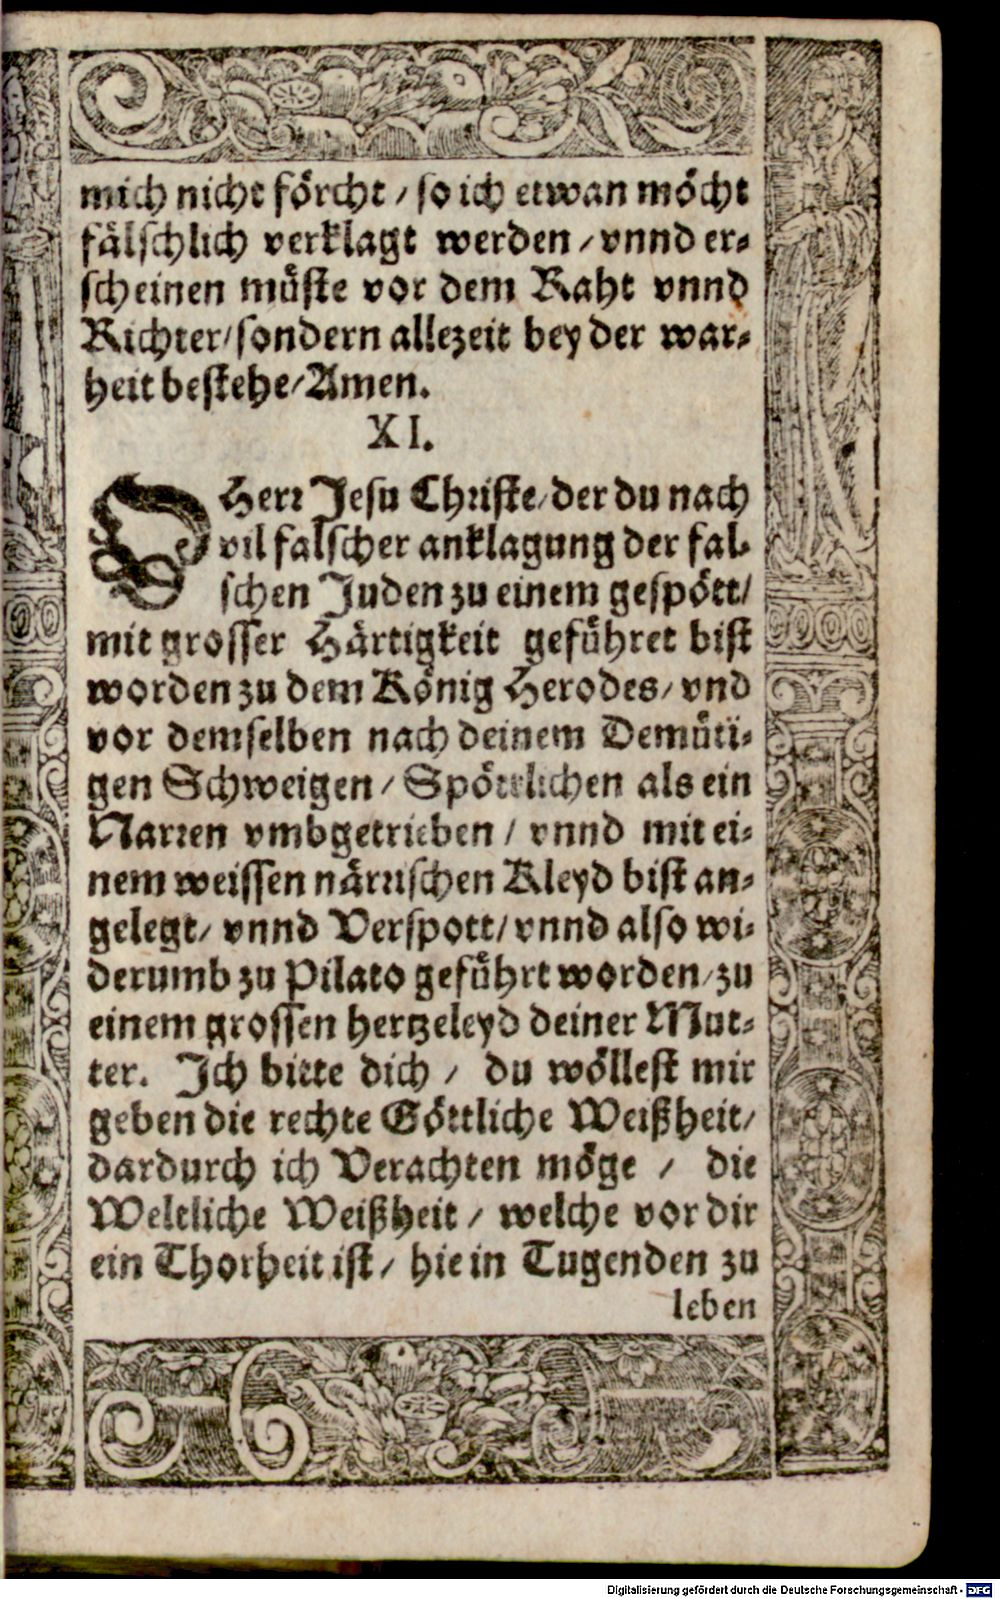 mich nicht förcht / so ich etwan möcht
fälschlich verklagt werden / vnnd er-
scheinen müste vor dem Raht vnnd
Richter / sondern allezeit bey der war-
heit bestehe / Amen.
XI.
O Herr Jesu Christe / der du nach
vil falscher anklagung der fal-
schen Juden zu einem gespött /
mit grosser Härtigkeit geführet bist
worden zu dem König Herodes / vnd
vor demselben nach deinem Demüti-
gen Schweigen / Spöttlichen als ein
Narren vmbgetrieben / vnnd mit ei-
nem weissen närrischen Kleyd bist an-
gelegt / vnnd Verspott / vnnd also wi-
derumb zu Pilato geführt worden / zu
einem grossen hertzeleyd deiner Mut-
ter. Ich bitte dich / du wöllest mir
geben die rechte Göttliche Weißheit /
dardurch ich Verachten möge / die
Weltliche Weißheit / welche vor dir
ein Thorheit ist / hie in Tugenden zu
leben
Digitalisierung gefördert durch die Deutsche Forschungsgemeinschaft - DFG